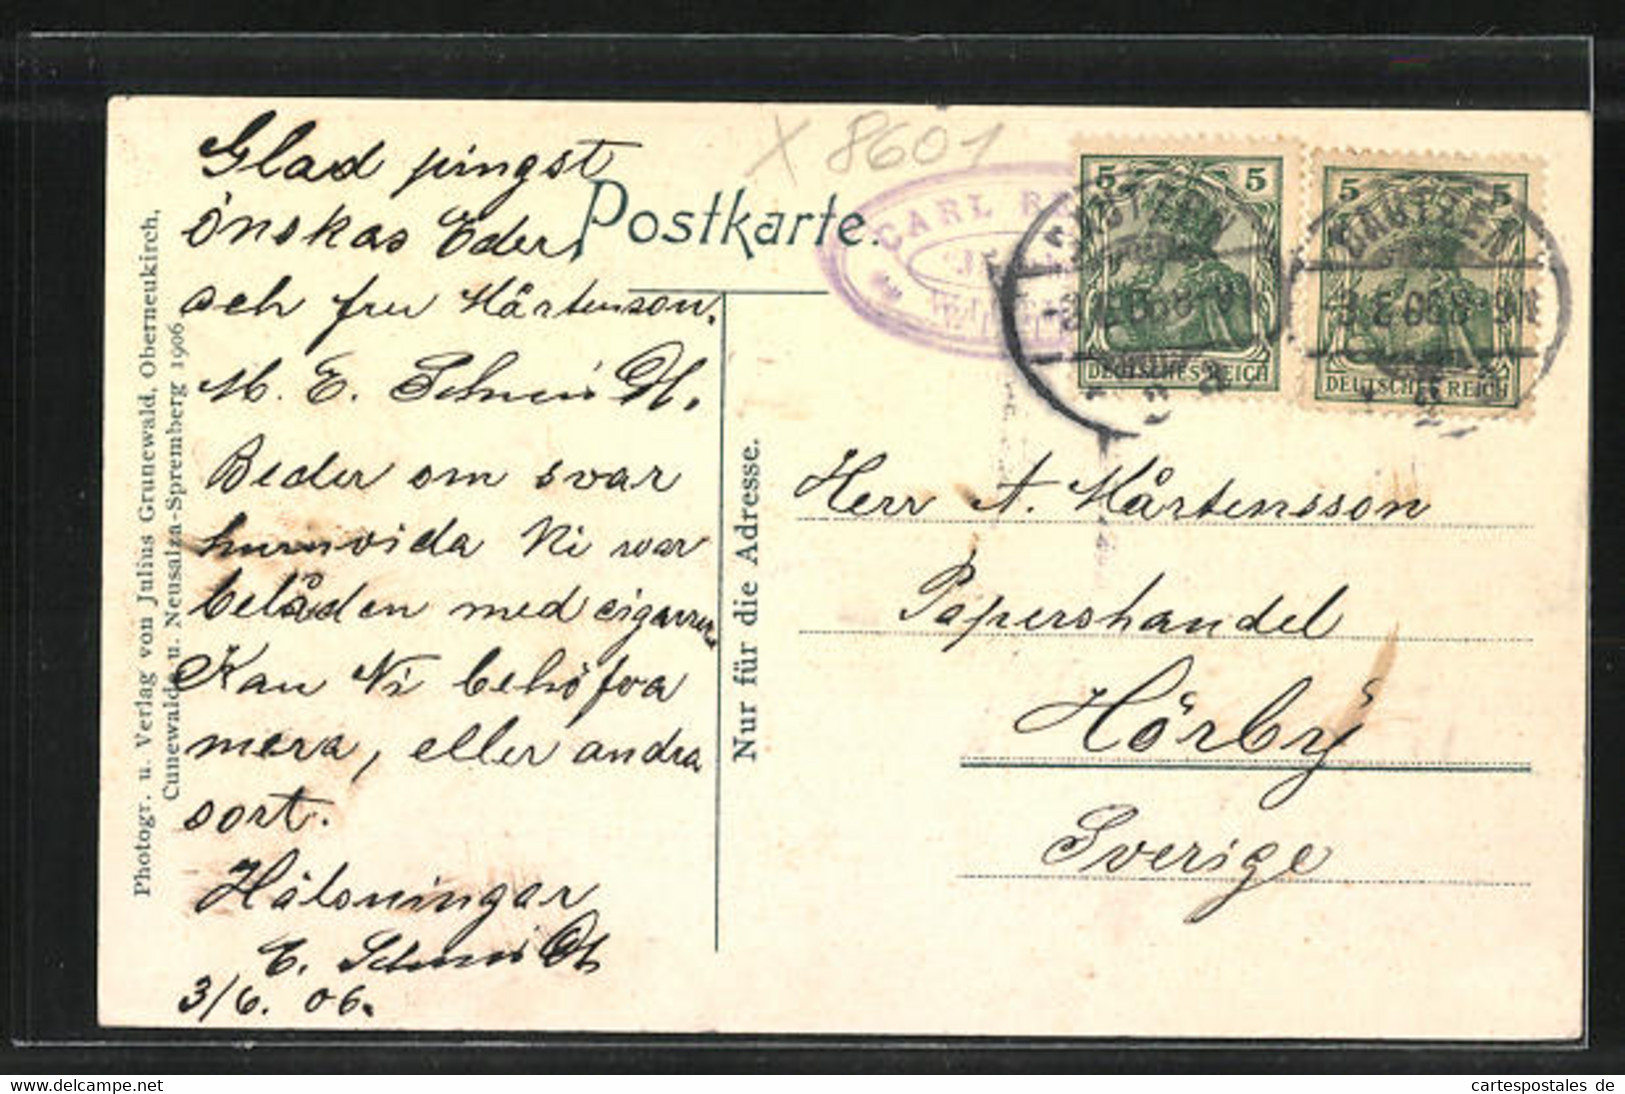 Glad pingst
önskas Eder
och fru Mårtenson.
M. E. Schmidt.
Beder om svar
huruvida Ni war
belåden med cigarrer
Kan Ni behöfva
mera, eller andra
sort.
Hälsningar
E. Schmidt
3/6. 06.
Photogr. u. Verlag von Julius Grunewald, Oberneukirch,
Cunewalde u. Neusalza-Spremberg 1906
Postkarte.
X 8601
CARL
5 5
DEUTSCHES REICH
5 5
DEUTSCHES REICH
BAUTZEN
BAUTZEN
Nur für die Adresse.
Herr A. Mårtensson
Papershandel
Hörby
Sverige
cartespostales de